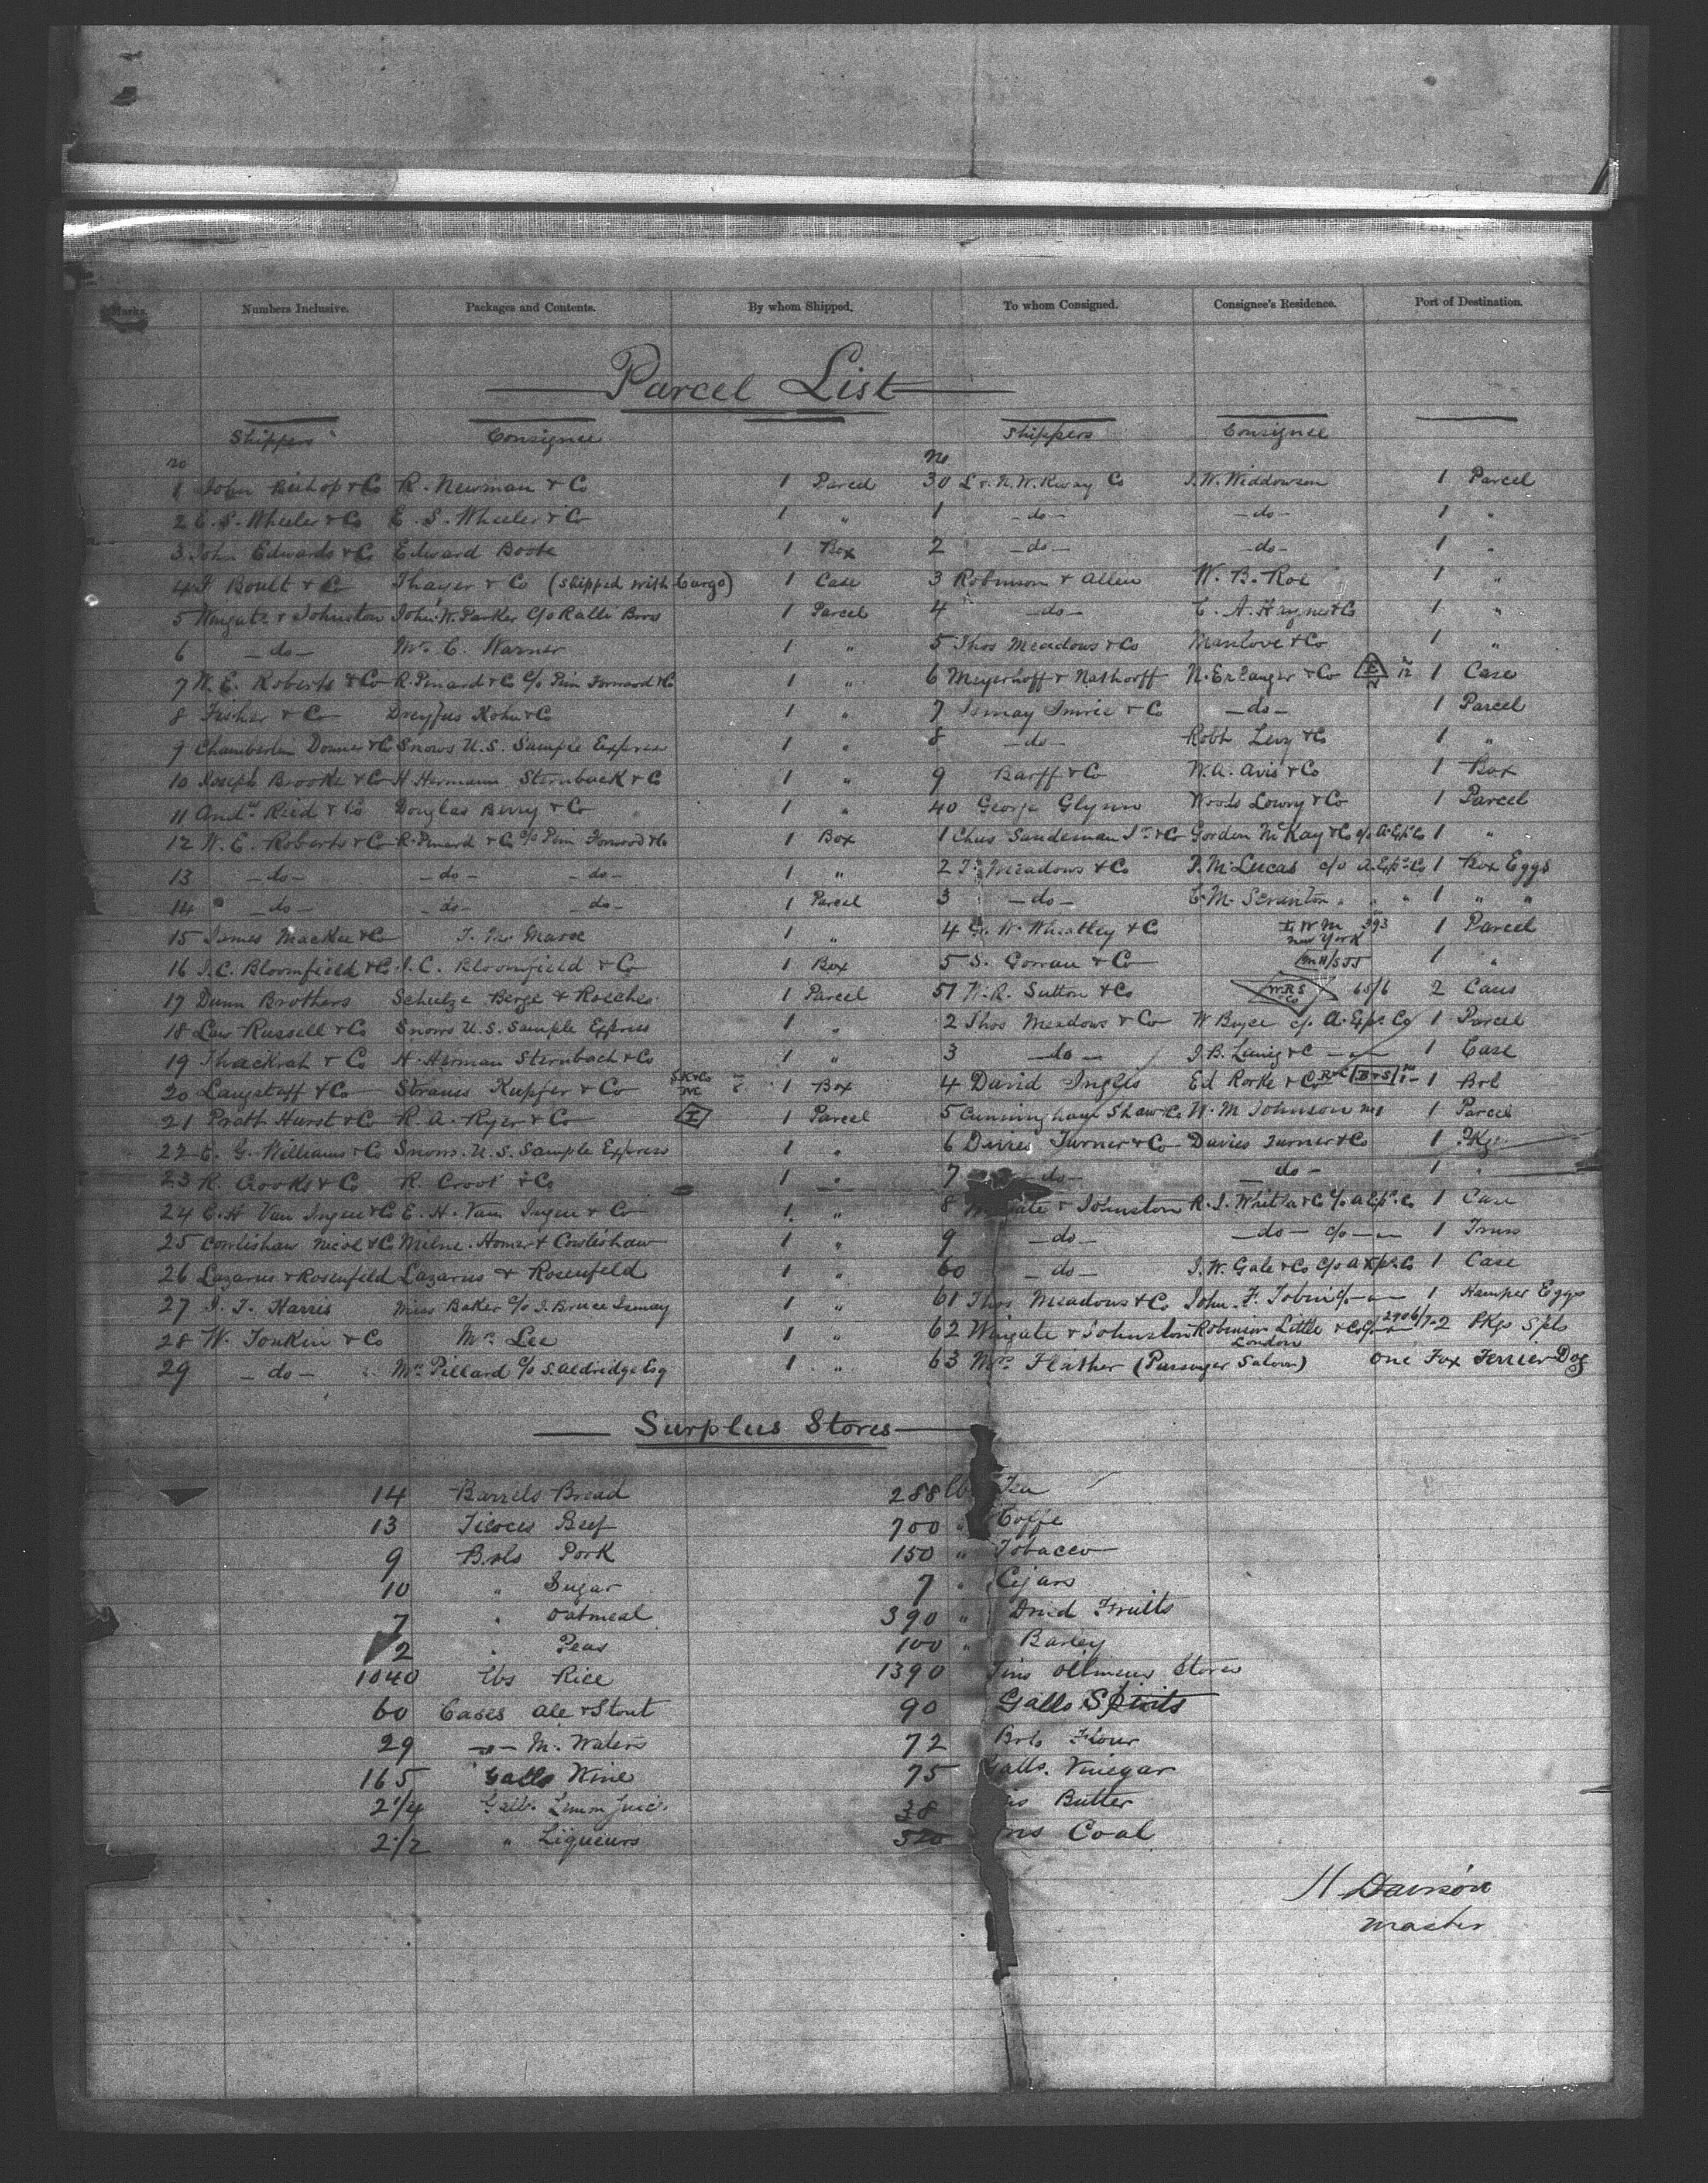 Marks. Numbers Inclusive. Packages and Contents. By whom Shipped. To whom Consigned. Consignee's Residence. Port of Destination.
Parcel List
Shippers Consignee
no
1 John Bishop & Co R. Newman & Co 1 Parcel
2 E. S. Wheeler & Co E. S. Wheeler & Co 1 "
3 John Edwards & Co Edward Boote 1 Box
4 Boult & Co Thayer & Co (shipped with Cargo) 1 Case
5 Wingate & Johnston John W. Parker c/o Ralli Bros 1 Parcel
6 - do - Mr C. Warner 1 "
7 W. E. Roberts & Co R. Pinard & Co c/o Pim Forwood & Co 1 "
8 Fisher & Co Dreyfus Kohn & Co 1 "
9 Chamberlin Donner & Co Snows U.S. Sample Express 1 "
10 Joseph Brooke & Co H. Hermann Sternback & Co 1 "
11 Andw Reid & Co Douglas Berry & Co 1 "
12 W. E. Roberts & Co R. Pinard & Co c/o Pim Forwood & Co 1 Box
13 - do - - do - - do - 1 "
14 - do - - do - - do - 1 Parcel
15 James Mackee & Co Marse 1 "
16 J. C. Bloomfield & Co J. C. Bloomfield & Co 1 Box
17 Dunn Brothers Schulze Berge & Koeches 1 Parcel
18 Law Russell & Co Snows U.S. Sample Express 1 "
19 Thackrah & Co H. Herman Sternbach & Co 1 "
20 Langstaff & Co Strauss Kupfer & Co S.K & Co 1 Box
21 Pratt Hurst & Co R. A. Ryer & Co I 1 Parcel
22 E. G. Williams & Co Snows. U.S. Sample Express 1 "
23 R. Crooks & Co R. Crook & Co 1 "
24 E. H Van Ingen & Co E. H. Van Ingen & Co 1 "
25 Cowlishaw Nicol & Co Milne. Homer & Cowlishaw 1 "
26 Lazarus & Rosenfeld Lazarus & Rosenfeld 1 "
27 J. T. Harris Miss Baker c/o J. Bruce Ismay 1 "
28 W. Tonkin & Co Mr Lee 1 "
29 - do - Mr Pillard c/o S. Aldridge Esq 1 "
Shippers Consignee
no
30 L & N. W. Rway Co J. W. Widdowson 1 Parcel
1 - do - - do - 1 "
2 - do - - do - 1 "
3 Robinson & Allen W. B. Roe 1 "
4 - do - E. A. Haynes & Co 1 "
5 Thos Meadows & Co Manlove & Co 1 "
6 Meyerhoff & Nathorff N. Erlanger & Co E 12 1 Case
7 Ismay Imrie & Co - do - 1 Parcel
8 - do - Robt Levy & Co 1 "
9 Barff & Co W. A. Avis & Co 1 Box
40 George Glynn Woods Lowry & Co 1 Parcel
1 Chas Sandeman Jr & Co Gordon McKay & Co c/o A. Exps Co 1 "
2 Ts Meadows & Co P. M. Lucas c/o A. Exps Co 1 Box Eggs
3 - do - E. M. Scranton " " " 1 " "
4 G. W. Wheatley & Co I W M 393 New York 1 Parcel
5 S. Gorran & Co 1 "
51 W. R. Sutton & Co WRS Co 65/6 2 Cases
2 Thos Meadows & Co W Boyce c/o A. Exps Co 1 Parcel
3 - do - 1 Case
4 David Inglis Ed Rorke & Co 1 Brl
5 Cunningham Shaw & Co W. M Johnson 1 Parcel
6 Davies Turner & Co Davies Turner & Co 1 Pkge
7 - do - - do - 1 "
8 Wingate & Johnston R. J. Whitla & Co c/o A Exps. Co 1 Case
9 - do - - do - c/o - " - 1 Truss
60 - do - J. W. Gale & Co c/o A Exps. Co 1 Case
61 Thos Meadows & Co John. F. Tobin c/o - " - 1 Hamper Eggs
62 Wingate & Johnston Robinson Little & Co London 2906/7 - 2 Pkgs Spls
63 Mrs Flather (Passenger Saloon) One Fox Terrier Dog
Surplus Stores
14 Barrels Bread 288 lb Tea
13 Tierces Beef 700 " Coffe
9 Brls Pork 150 " Tobacco
10 " Sugar 7 " Cigars
7 " Oatmeal 390 " Dried Fruits
2 " Peas 100 " Barley
1040 lbs Rice 1390 Tins Oilmens Stores
60 Cases Ale & Stout 90 Galls Spirits
29 - " - M. Waters 72 Brls Flour
165 Galls Wine 75 Galls. Vinegar
2 1/4 Galls. Limon Juice. 38 Butter
2 1/2 " Liqueurs 520 Coal
H. Davison
Master